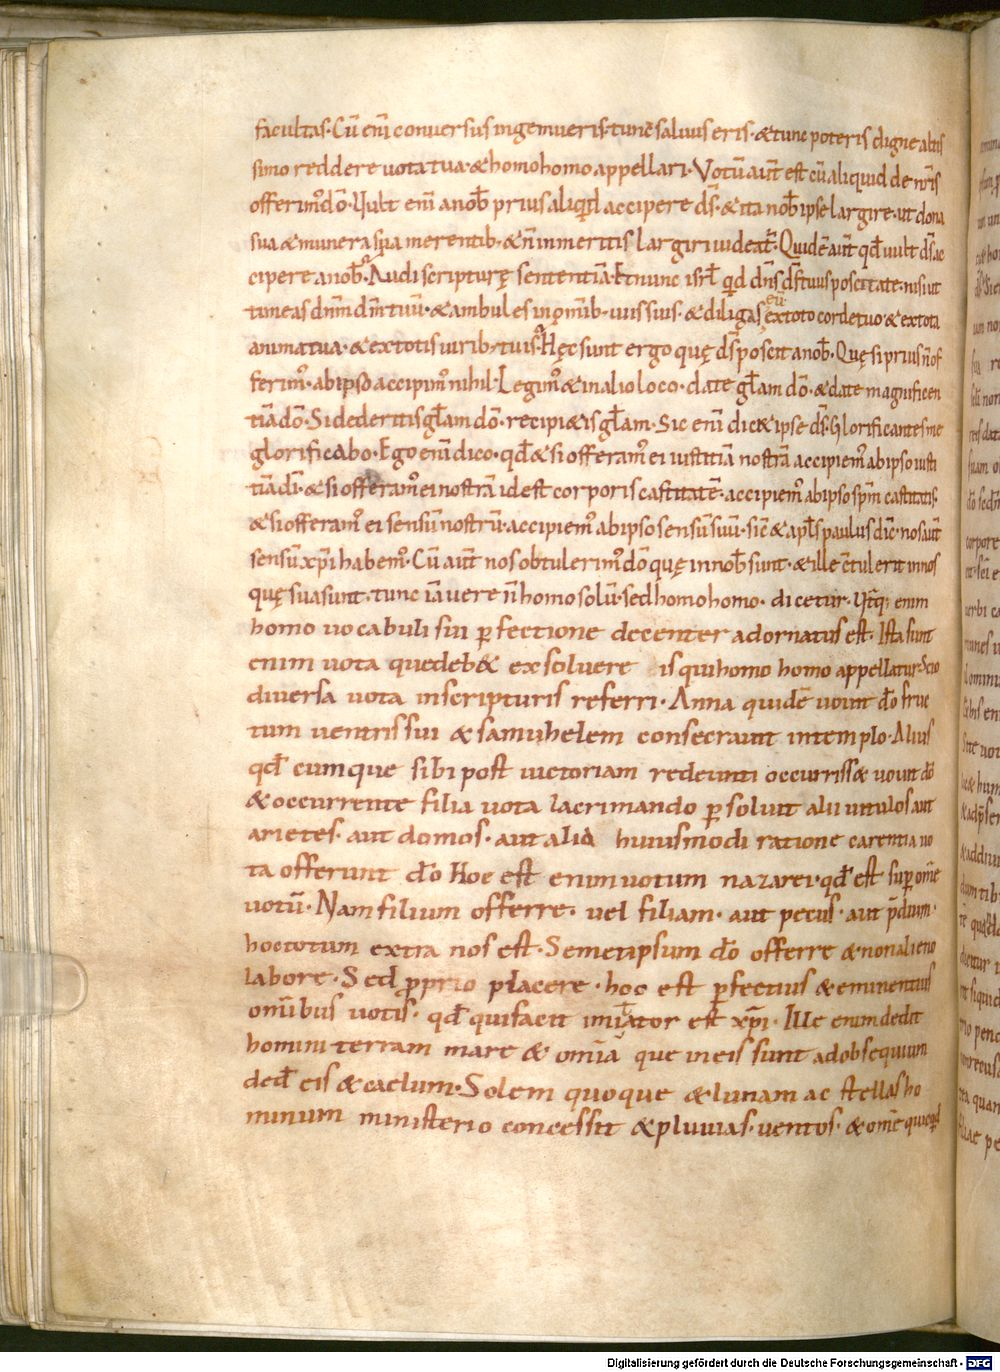 facultas· Cū enī conversus ingemueris· tunc̄ salvus eris· & tunc poteris digne altis
simo reddere vota tua· & homo homo appellari· Votū aūt est cū aliquid de nr̄is
offerim᷒ dō· Vult enī a nob̄ prius aliqd accipere d̄s· & ita nob̄ ipse largire· ut dona
sua & munera sua merentib· & n̄ inmeritis largiri videat᷒· Quidē aūt qd̄ vult d̄s ac
cipere a nob̄· Audi scripturę sententiā· Et nunc isrl̄ qd dn̄s d̄s tuus poscit a te· nisi ut
timeas dn̄m dm̄ tuū· & ambules in omīb· viis suis· & diligas eū ex toto corde tuo· & ex tota
anima tua· & ex totis virib· tuis· Hęc sunt ergo quę d̄s poscit a nob̄· Quę si prius n̄ of
ferim᷒· ab ipso accipim᷒ nihil· Legim᷒ & in alio loco· date gl̄am dō· & date magnificen
tiā dō· Si dederitis gl̄am dō· recipi&is gl̄am· Sic enī dic& ipse d̄s· Glorificantes me
glorificabo· Ego enī dico· qd̄ & si offeram᷒ ei iustitiā nostrā accipiem᷒ ab ipso iusti
tiā dī· & si offeram᷒ ei nostrā id est corporis castitatē· accipiem᷒ ab ipso spm̄ castitatis·
& si offeram᷒ ei sensū nostrū· accipiem᷒ ab ipso sensū suū· sic̄ & apls̄ paulus dic̄· nos aūt
sensū xp̄i habem᷒· Cū aūt nos obtulerim᷒ dō quę in nob̄ sunt· & ille c̄tulerit in nos
quę sua sunt· tunc iā vere n̄ homo solū· sed homo homo· dicetur· Vtq; enim
homo vocabuli sui p̄fectione decenter adornatus est· Ista sunt
enim vota que deb& exsolvere is qui homo homo appellatur· Scio
diversa vota in scripturis referri· Anna quidē vovit dō fruc
tum ventris sui & samuhelem consecravit in templo· Alius
qd̄cumque sibi post victoriam redeunti occurriss& vovit dō
& occurrente filia vota lacrimando p̄solvit alii vitulos aut
arietes· aut domos· aut alia huiusmodi ratione carentia vo
ta offerunt dō Hoc est enim votum nazarei· qd̄ est sup̄ om̄e
votū· Nam filium offerre· vel filiam· aut pecus· aut p̄dium·
hoc totum extra nos est· Semetipsum dō offerre & non alieno
labore· Sed proprio placere· hoc est p̄fectius & eminentius
omībus votis· qd̄ qui facit imitator est xp̄i· Ille enim dedit
homini terram mare & omīa que in eis sunt ad obsequium
ded̄ eis & caelum· Solem quoque & lunam ac stellas ho
minum ministerio concessit & pluvias· ventos· & om̄e quicqd
Digitalisierung gefördert durch die Deutsche Forschungsgemeinschaft - DFG